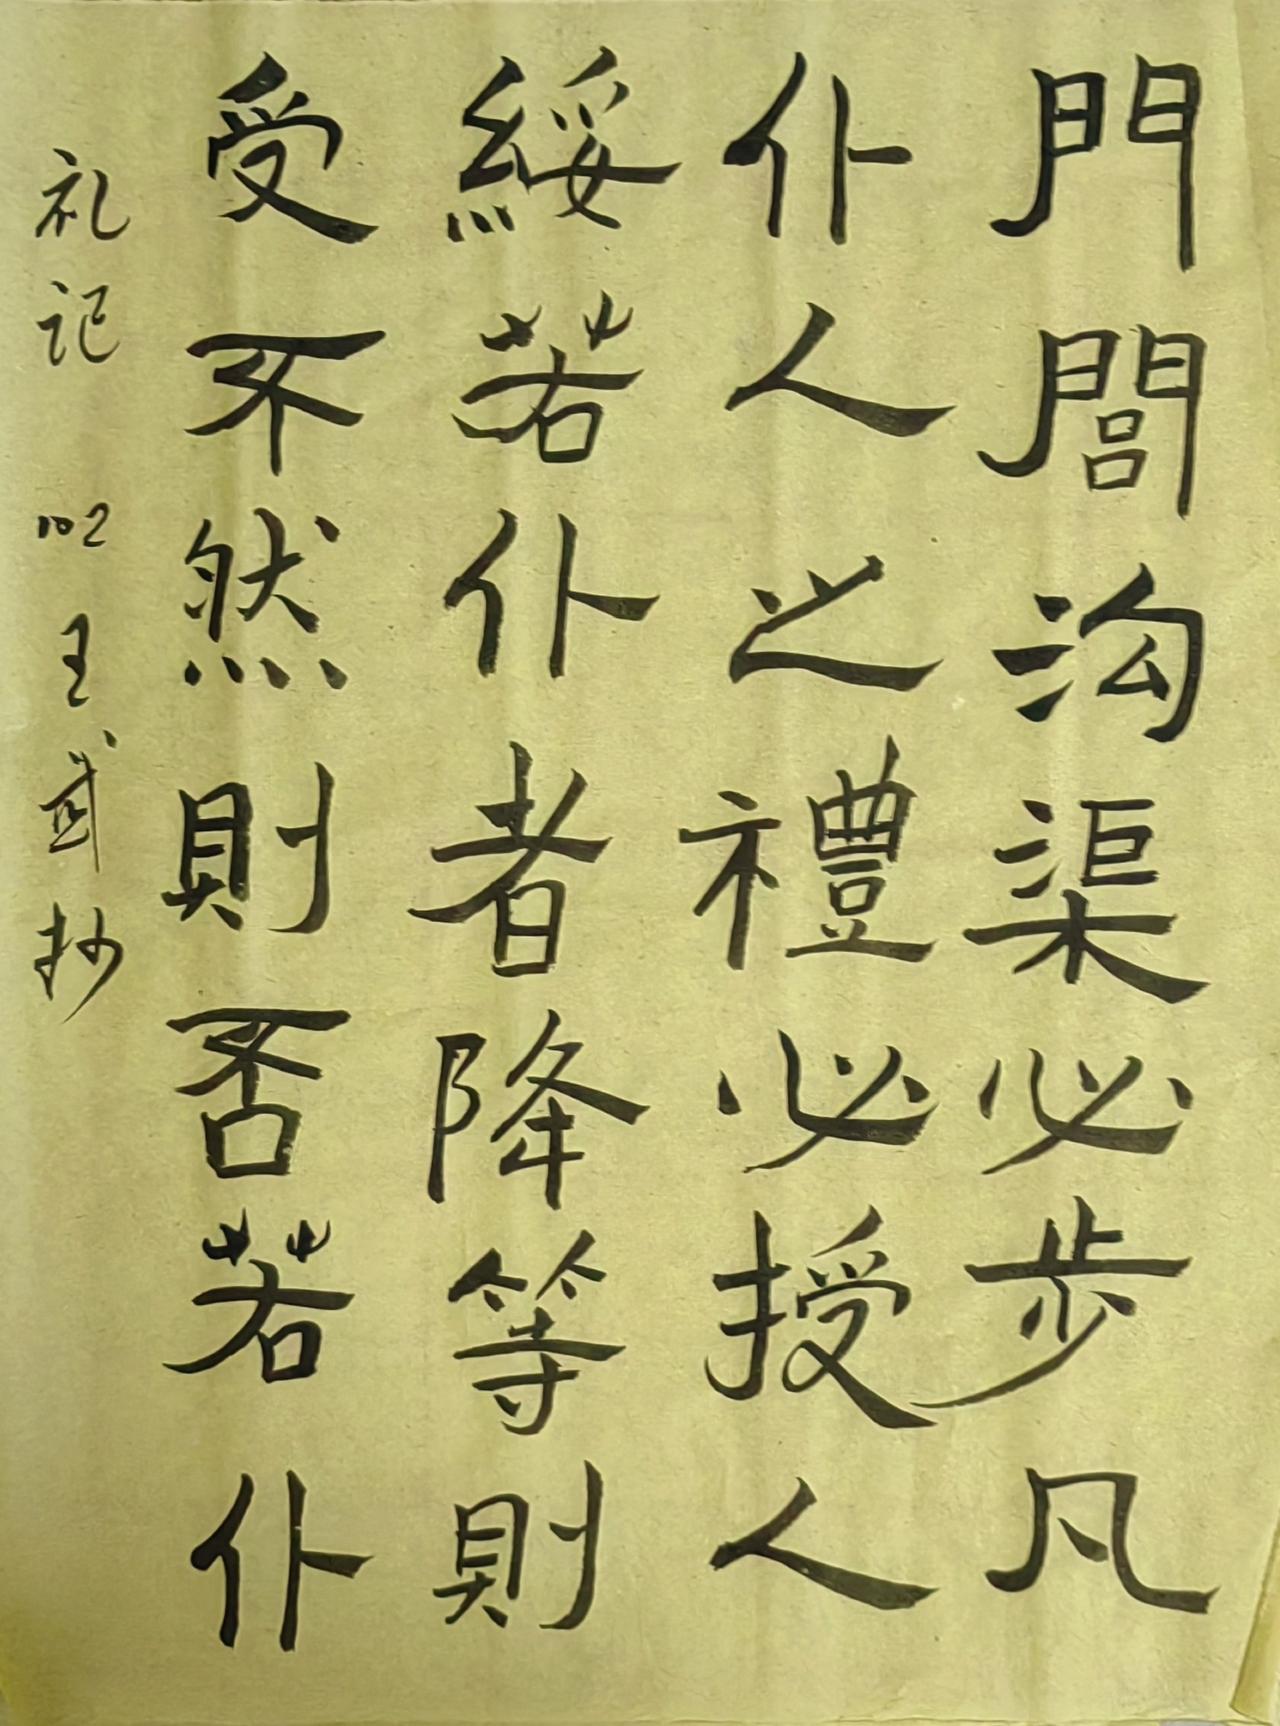 門閭沟渠必步凡
仆人之禮必授人
綏若仆者降等則
受不然則否若仆
礼记 102 王武抄